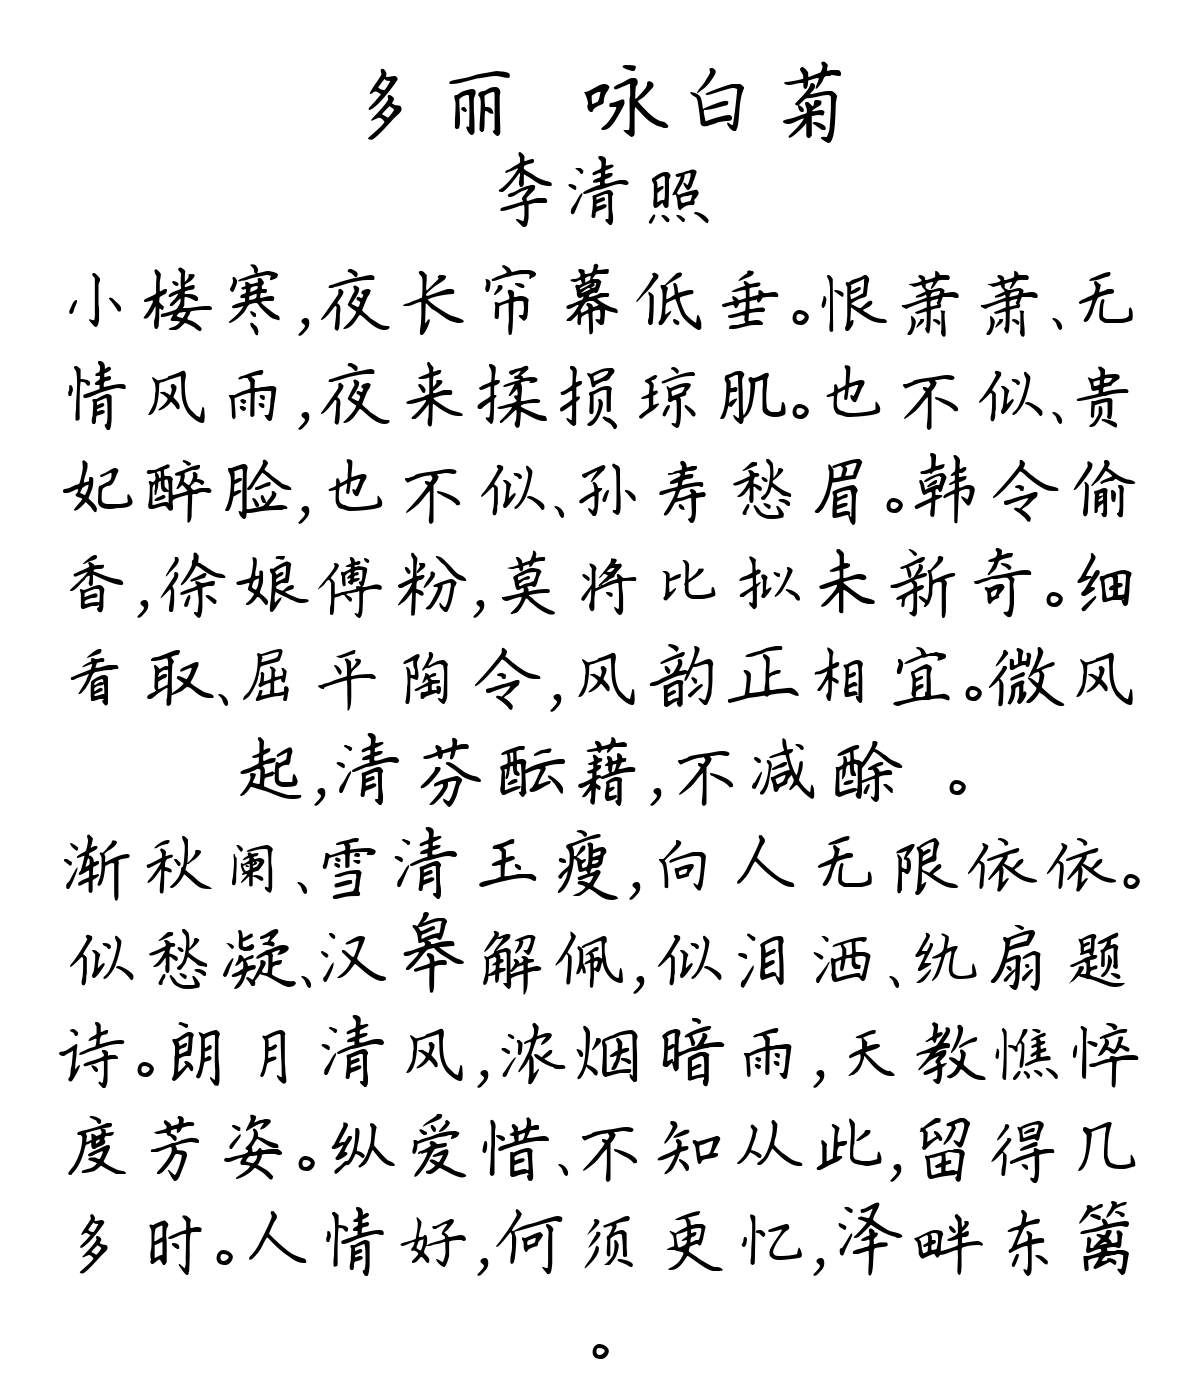 多丽 咏白菊
李清照
小楼寒,夜长帘幕低垂。恨萧萧、无
情风雨,夜来揉损琼肌。也不似、贵
妃醉脸,也不似、孙寿愁眉。韩令偷
香,徐娘傅粉,莫将比拟未新奇。细
看取、屈平陶令,风韵正相宜。微风
起,清芬酝藉,不减酴 。
渐秋阑、雪清玉瘦,向人无限依依。
似愁凝、汉皋解佩,似泪洒、纨扇题
诗。朗月清风,浓烟暗雨,天教憔悴
度芳姿。纵爱惜、不知从此,留得几
多时。人情好,何须更忆,泽畔东篱
。